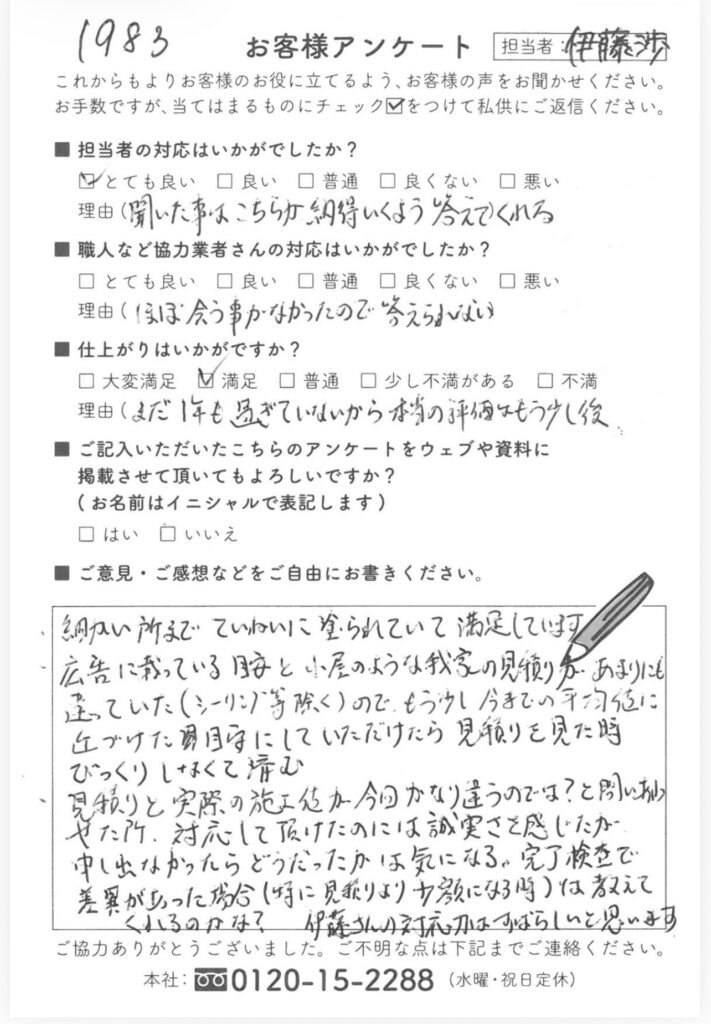 1983
お客様アンケート 担当者: 伊藤渉
これからもよりお客様のお役に立てるよう、お客様の声をお聞かせください。
お手数ですが、当てはまるものにチェック☑をつけて私供にご返信ください。
■ 担当者の対応はいかがでしたか？
☑とても良い □良い □普通 □良くない □悪い
理由（聞いた事はこちらが納得いくよう答えてくれる
■ 職人など協力業者さんの対応はいかがでしたか？
□とても良い □良い □普通 □良くない □悪い
理由（ほぼ会う事がなかったので答えられない）
■ 仕上がりはいかがですか？
□大変満足 ☑満足 □普通 □少し不満がある □不満
理由（まだ1年も過ぎていないから本当の評価はもう少し後
■ ご記入いただいたこちらのアンケートをウェブや資料に
掲載させて頂いてもよろしいですか？
（お名前はイニシャルで表記します）
□はい □いいえ
■ ご意見・ご感想などをご自由にお書きください。
・細かい所までていねいに塗られていて満足しています
・広告に載っている目安と小屋のような我家の見積りがあまりにも
違っていた（シーリング等除く）ので、もう少し今までの平均値に
近づけた目安にしていただけたら見積りを見た時
びっくりしなくて済む
・見積りと実際の施工値が今回かなり違うのでは？と問い合わ
せた所、対応して頂けたのには誠実さを感じたが
申し出なかったらどうだったかは気になる。完了検査で
差異があった場合（特に見積りより少額になる時）は教えて
くれるのかな？ 伊藤さんの対応力はすばらしいと思います
ご協力ありがとうございました。ご不明な点は下記までご連絡ください。
本社: 0120-15-2288（水曜・祝日定休）